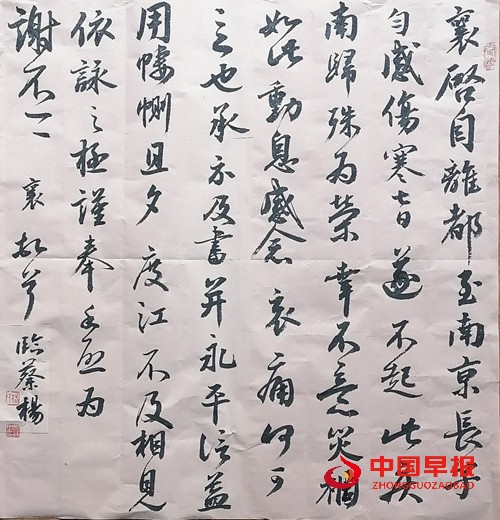 襄啓自離都至南京長子
勻感傷寒七日遂不起此疾
南歸殊為榮幸不意災禍
如此動息感念哀痛何可
言也承示及書并永平信益
用悽惻旦夕度江不及相見
依詠之極謹奉手啓為
謝不一一 襄 頓首
臨蔡楊
中国早报
ZHONGGUOZAOBAO